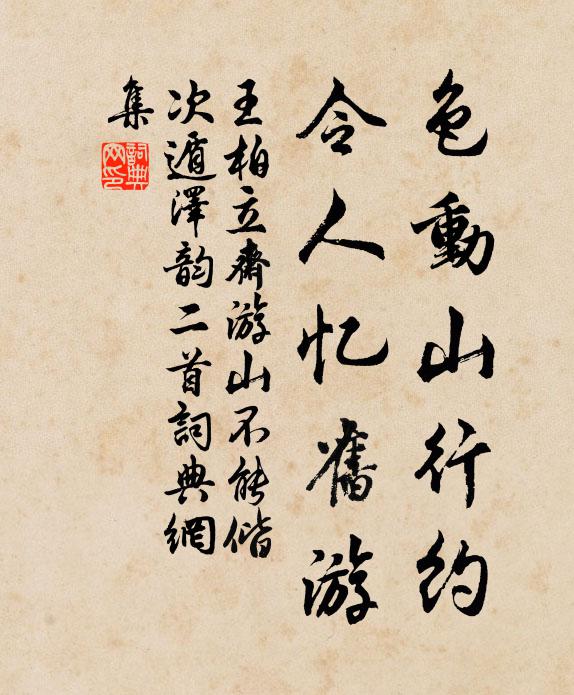 色動山行约
令人忆舊游
王柏立齋游山不能偕
次遁澤韵二首詞典網
集
詞典网印